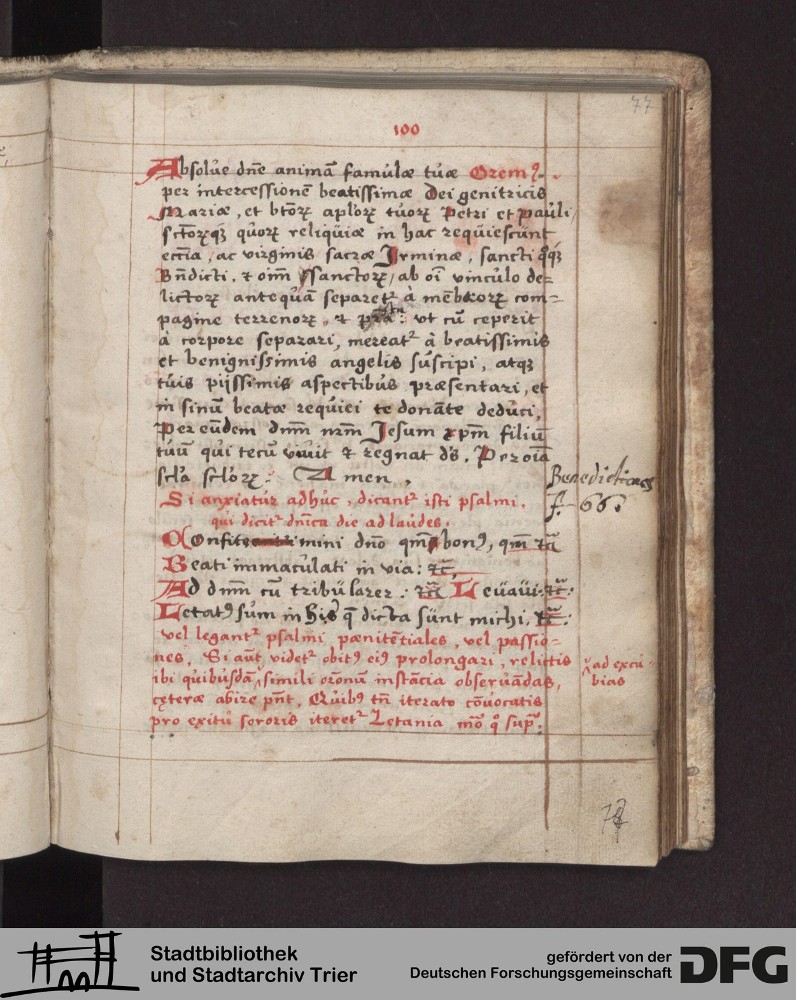 77
100
Absolue dne animã famulæ tuæ Orem9.
per intercessionẽ beatissimæ Dei genitricis
Mariæ, et btorꝝ aplorꝝ tuorꝝ Petri et Pauli
sctorꝝqꝫ quorꝝ reliquiæ in hac requiescunt
eccĩa, ac virginis sacræ Irminæ, sancti qꝫ
Bñdicti, & oim̃ sanctorꝝ, ab oĩ vinculo de=
lictorꝝ antequã separet᷑ à mẽbrorꝝ com=
pagine terrenorꝝ, & : ut cũ ceperit
à corpore separari, mereat᷑ à beatissimis
et benignissimis angelis suscipi, atqꝫ
tuis pijssimis aspectibus præsentari, et
in sinu beatæ requiei te donãte deduci,
Per eũndem dnm̃ nrm̃ Jesum xpm̃ filiũ
tuũ qui tecũ viuit & regnat ds. Per oĩa
scla sclorꝝ. Amen.
Benedictiones
f. 66.
Si anxiatur adhuc, dicant᷑ isti psalmi,
qui dicit᷑ dñica die ad laudes.
Confitemini dño qm̃ bonꝰ, qm̃
Beati immaculati in via: &c̃.
Ad dnm̃ cũ tribularer: Leuaui: &c̃:
Letatꝰ sum in his q̃ dicta sunt michi, &c̃:
vel legant᷑ psalmi pænitẽtiales, vel passio=
nes. Si aut̃ videt᷑ obitꝰ eiꝰ prolongari, relictis
ibi quibusdã simili oronũ instãcia obseruãdas,
ad excu=
bias
cęteræ abire pñt, Quibꝰ tñ iterato cõuocatis
pro exitu sororis iteret᷑ Letania mõ q̊ sup᷑.
Stadtbibliothek
und Stadtarchiv Trier
gefördert von der
Deutschen Forschungsgemeinschaft
DFG